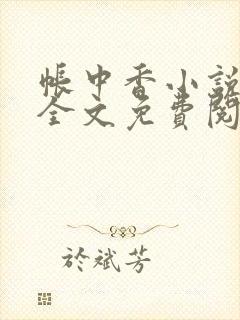 帳中香小說
全文免費閱
於斌芳